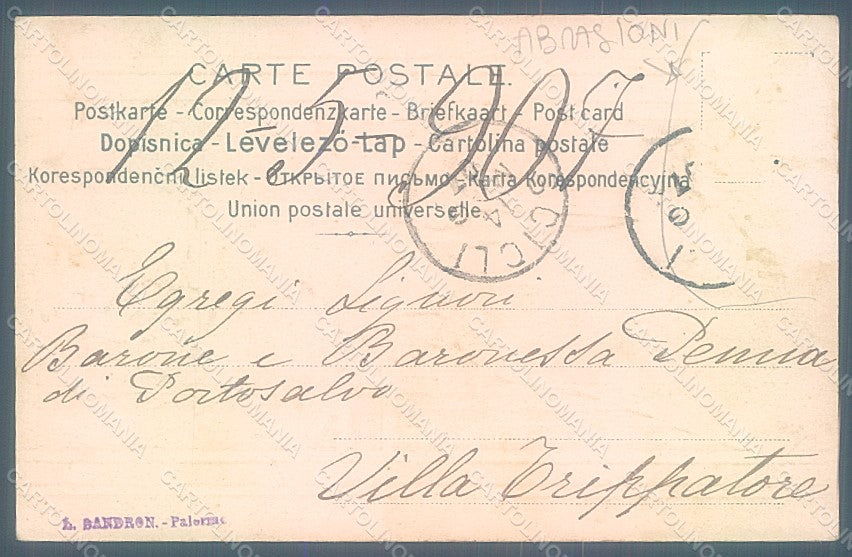 ABRASIONI
CARTE POSTALE.
Postkarte - Correspondenzkarte - Briefkaart - Post card
Dopisnica - Levelező-Lap - Cartolina postale
Korespondenční listek - Открытое письмо - Karta Korespondencyjna
Union postale universelle
12.5.907
SCICLI
Egregi Signori
Barone e Baronessa Penna
di Portosalvo
Villa Trippatore
L. SANDRON. - Palermo
CARTOLINOMANIA